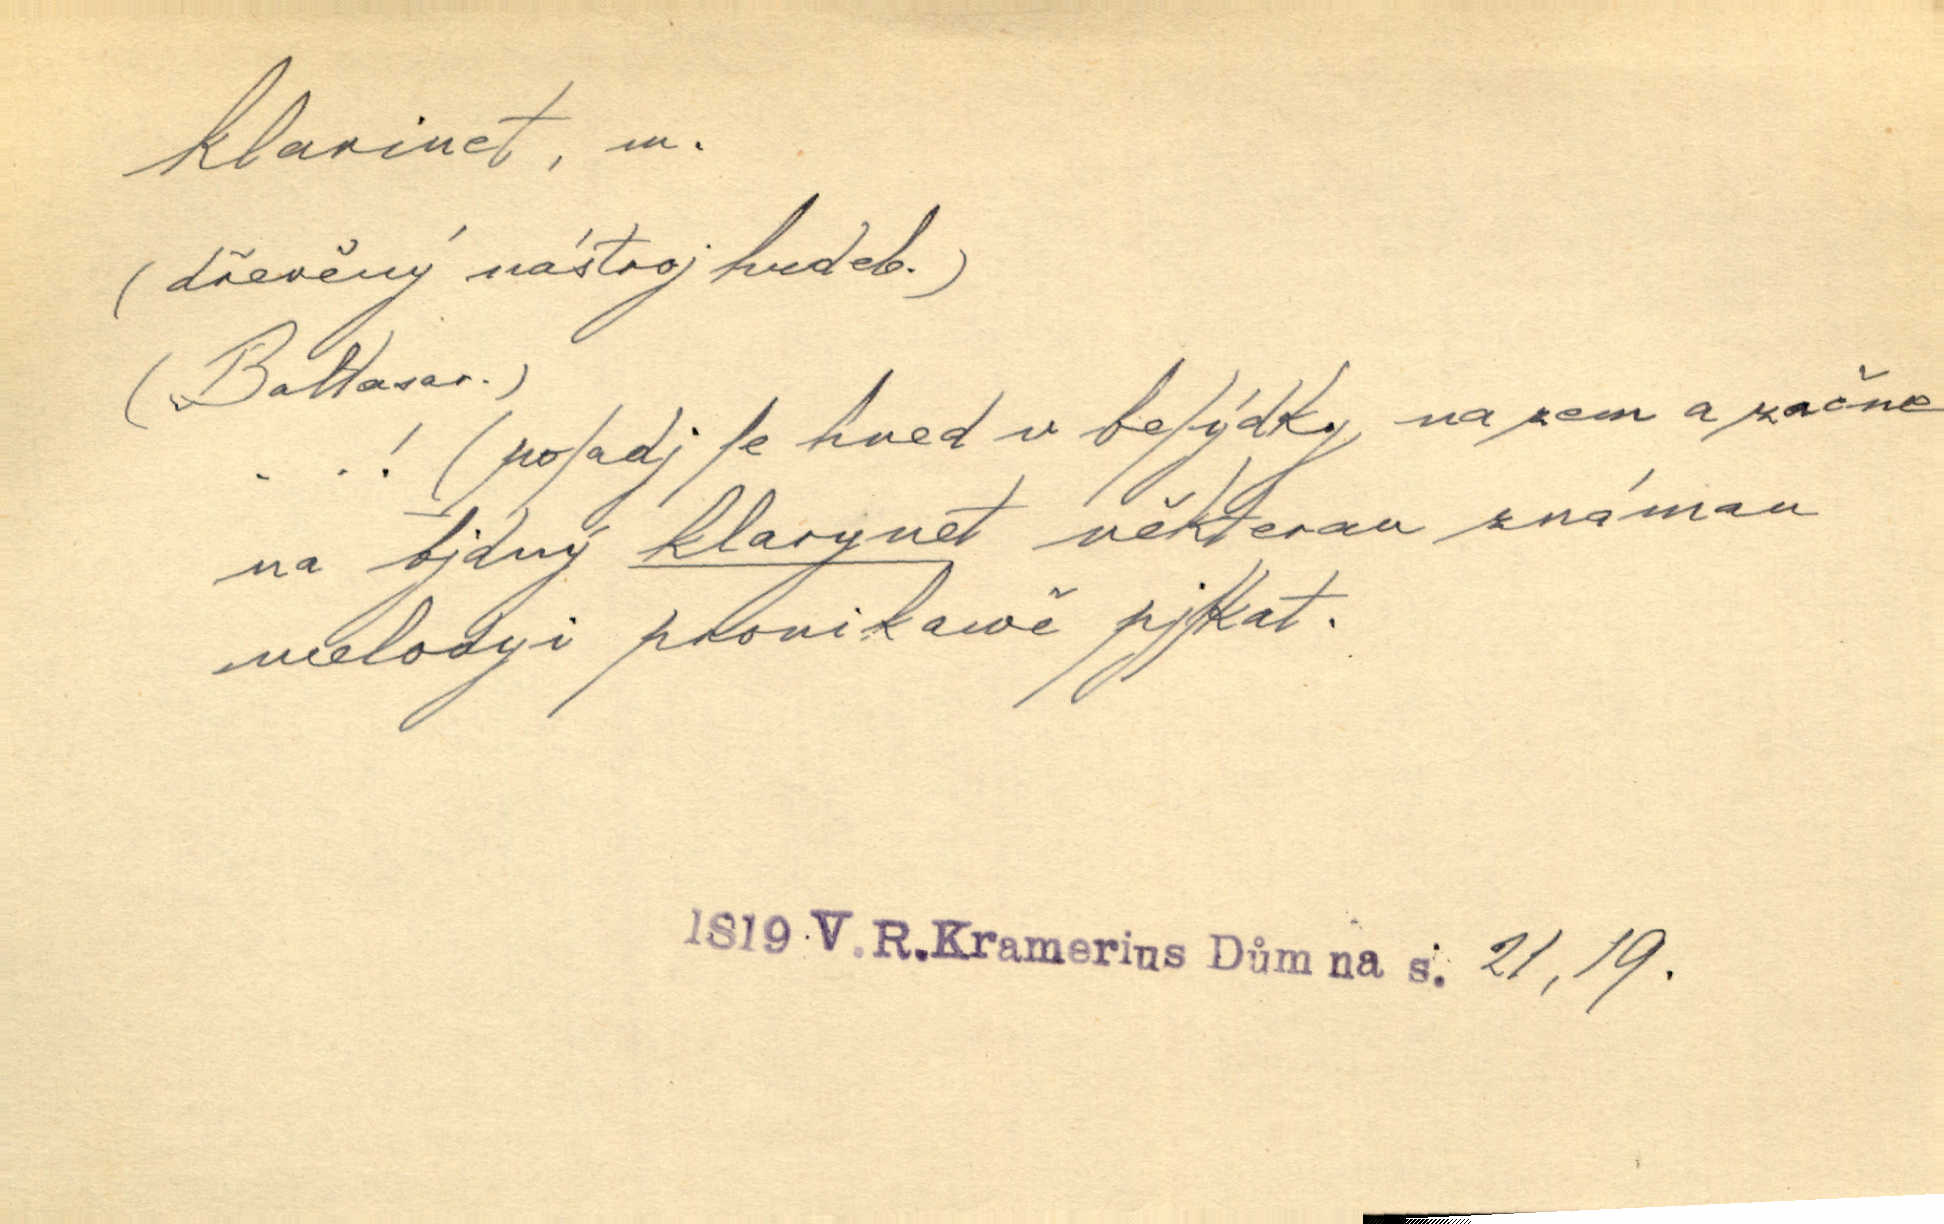 klarinet, m.
(dřevěný nástroj hudeb.)
(Baltasar.)
. . ! (poſadj ſe hned v beſýdky na zem a začne
na bjdný klarynet některau známau
melodyi pronikawě pjſkat.
1819 V.R.Kramerius Dům na s. 21, 19.